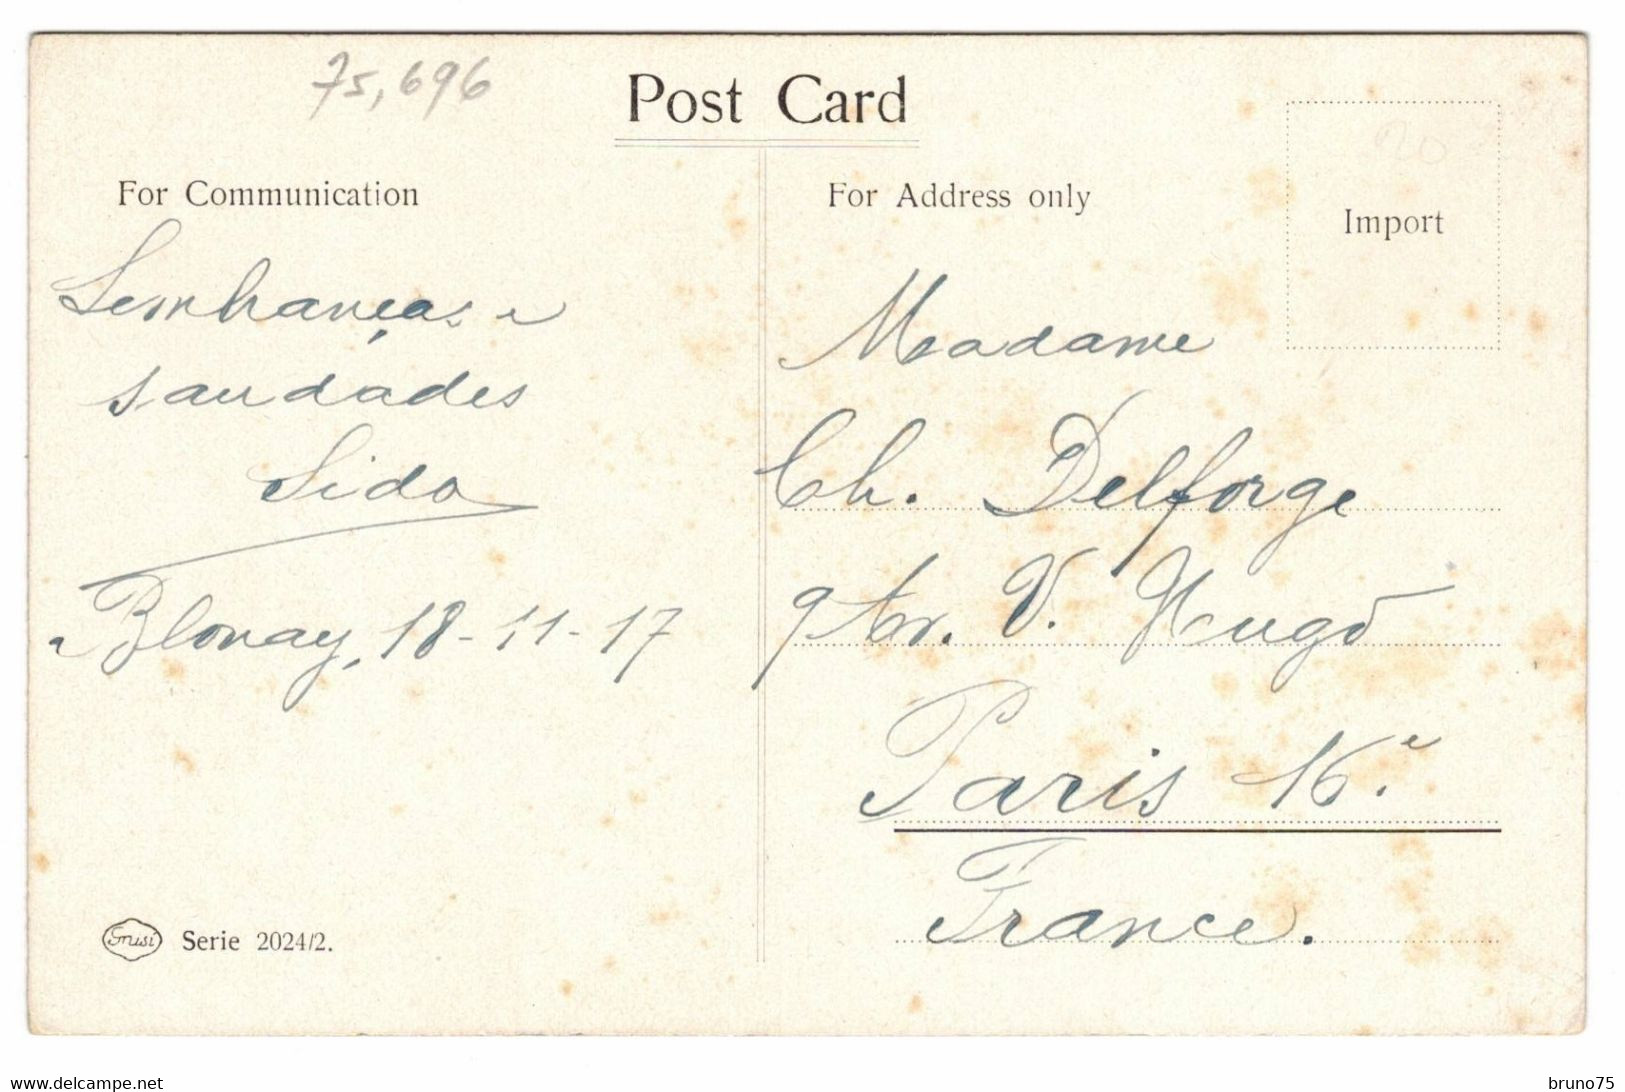 75,696
Post Card
For Communication
For Address only
20
Import
Lembranças e
saudades
Sida
Blonay, 18-11-17
Madame
Ch. Delforge
9 Av. V. Hugo
Paris 16.e
France.
Serie 2024/2.
www.delcampe.net
bruno75